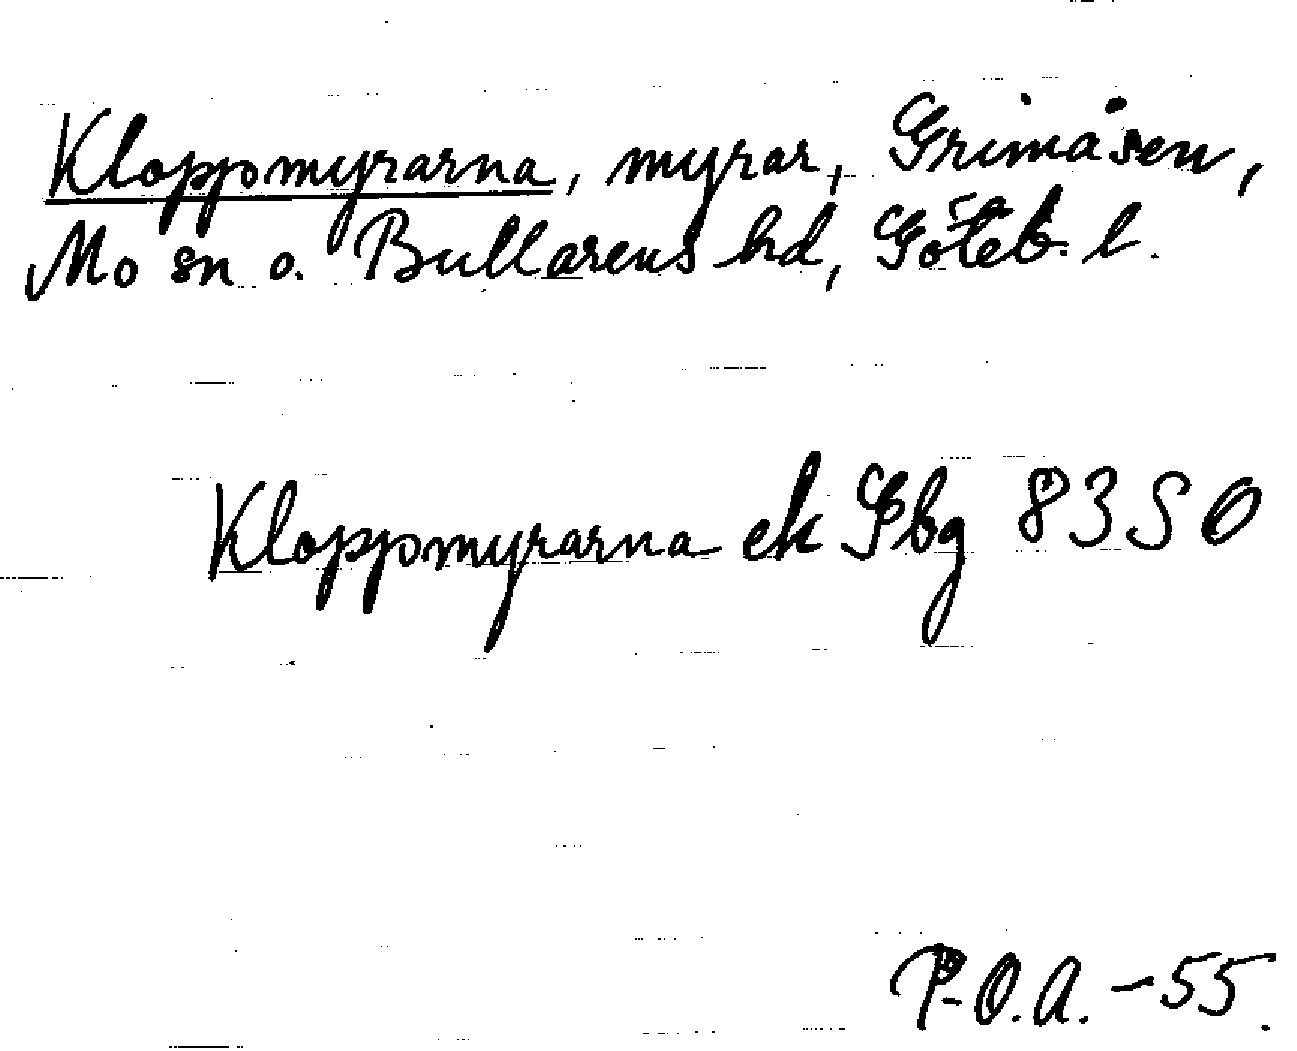 Kloppmyrarna, myrar, Grimåsen,
Mo sn o. Bullarens hd, Göteb. l.
Kloppmyrarna ek Gbg 8350
P-O.A. -55.